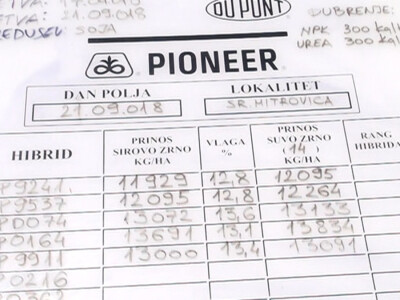 DU PONT
21.09.018
SOJA
ĐUBRENJE:
NPK 300 kg/h
UREA 300 kg/h
PIONEER®
DAN POLJA LOKALITET
21 09.018 SR. MITROVICA
HIBRID PRINOS SIROVO ZRNO KG/HA VLAGA % PRINOS SUVO ZRNO (14) KG/HA RANG HIBRIDA
P9241. 11929 12,8 12095
P9537 12095 12,8 12264
P0074 13072 13,6 13133
P0164 13691 13,1 13834
P9911 13000 13,4 13091
P0216